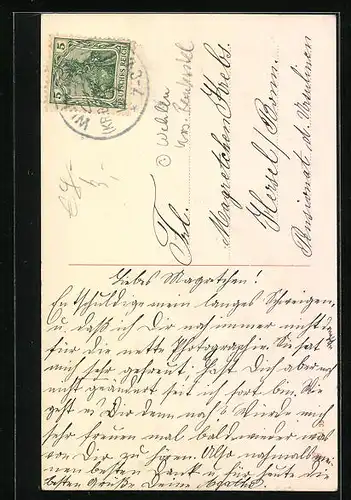 5 DEUTSCHES REICH 5
Wehlen
Frl.
Magretchen Krebs.
Hersel / Bonn.
Pensionat d. Ursulinen
Liebes Magretchen!
Entschuldige mein langes Schweigen.
u. daß ich Dir noch immer nicht
für die nette Photographie. Sie hat
mich sehr gefreut. Hast Dich aber noch
nicht geändert seit ich fort bin. Wie
geht es Dir denn noch? Würde mich
sehr freuen mal bald wieder was
von Dir zu hören. Also nochmals mei-
nen besten Dank u. für heute die
besten Grüße Deine